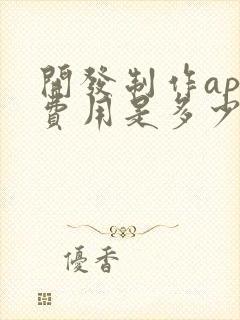 開發制作ap
費用是多少
優香